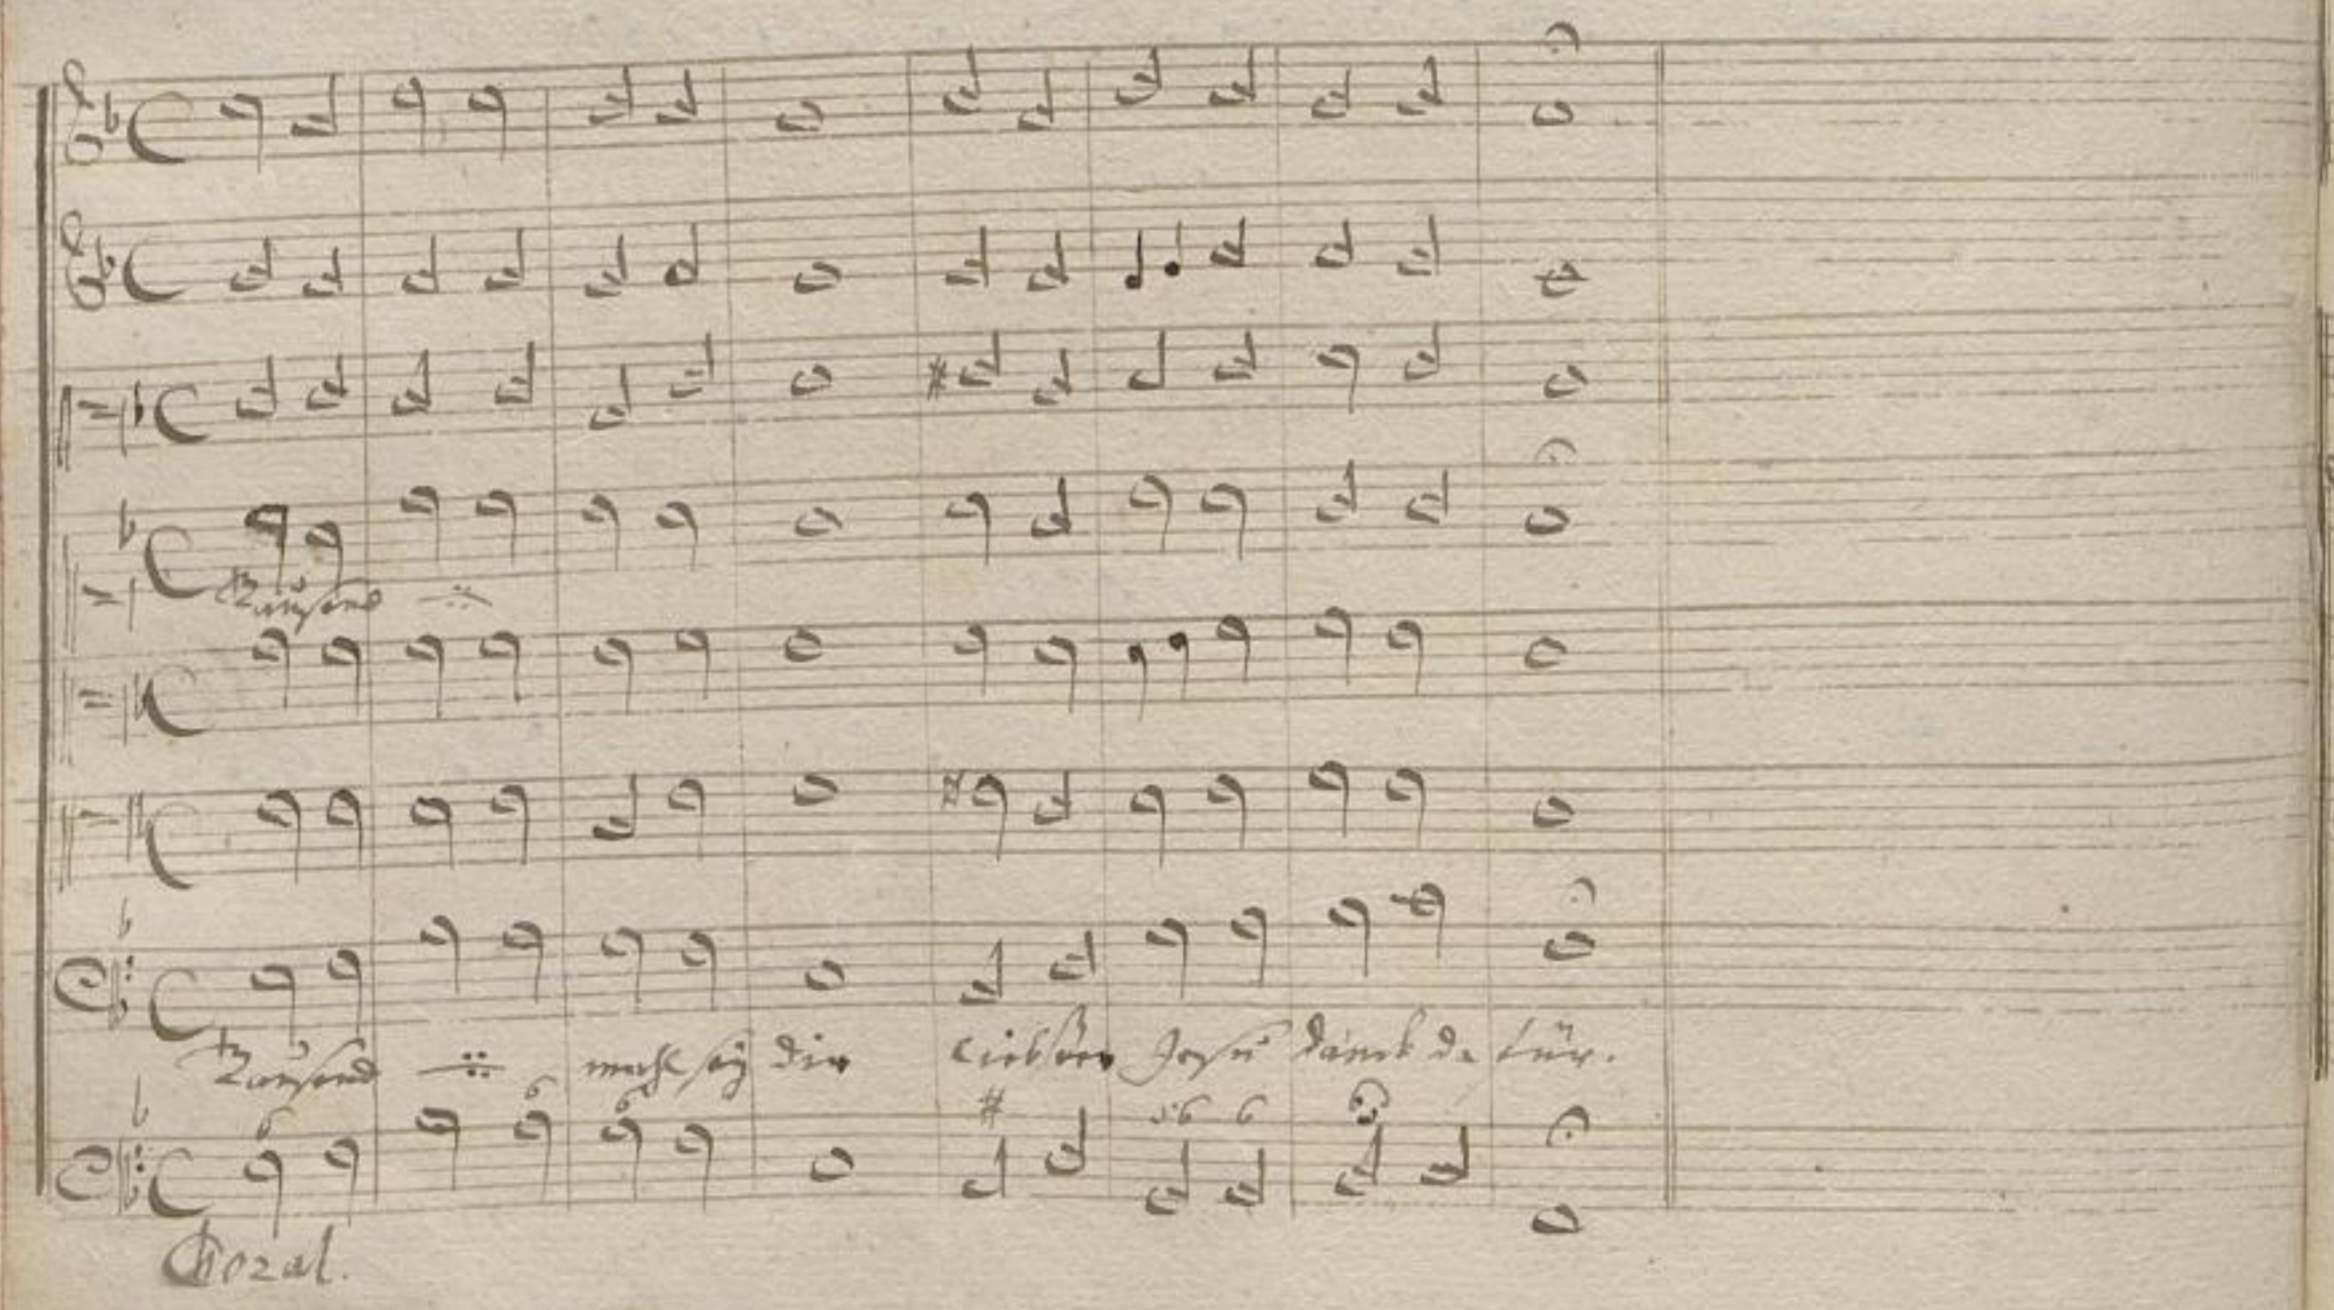 Tausend
Tausend mahl seÿ dir liebster Jesu danck da für.
6 6 6 # 56 6
Choral.